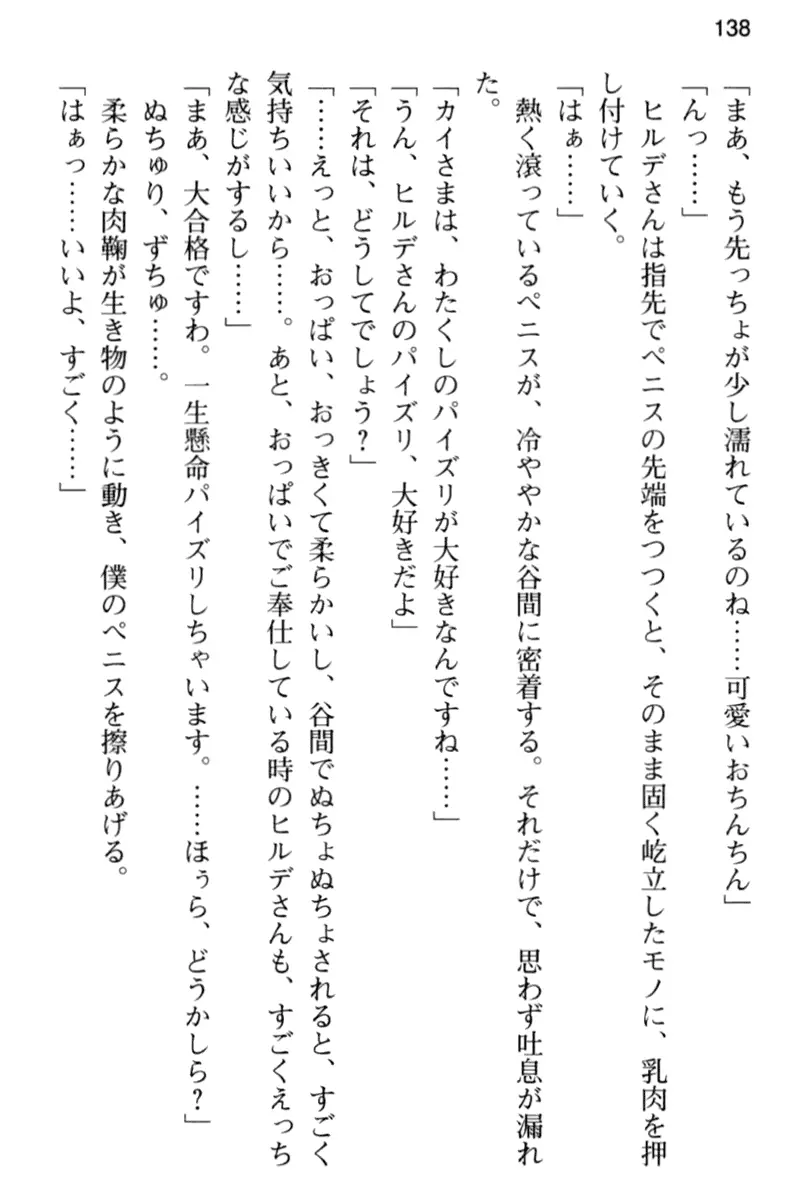 138
「まあ、もう先っちょが少し濡れているのね……可愛いおちんちん」
「んっ……」
ヒルデさんは指先でペニスの先端をつつくと、そのまま固く屹立したモノに、乳肉を押
し付けていく。
「はぁ……」
熱く滾っているペニスが、冷ややかな谷間に密着する。それだけで、思わず吐息が漏れ
た。
「カイさまは、わたくしのパイズリが大好きなんですね……」
「うん、ヒルデさんのパイズリ、大好きだよ」
「それは、どうしてでしょう？」
「……えっと、おっぱい、おっきくて柔らかいし、谷間でぬちょぬちょされると、すごく
気持ちいいから……。あと、おっぱいでご奉仕している時のヒルデさんも、すごくえっち
な感じがするし……」
「まあ、大合格ですわ。一生懸命パイズリしちゃいます。……ほぅら、どうかしら？」
ぬちゅり、ずちゅ……。
柔らかな肉鞠が生き物のように動き、僕のペニスを擦りあげる。
「はぁっ……いいよ、すごく……」